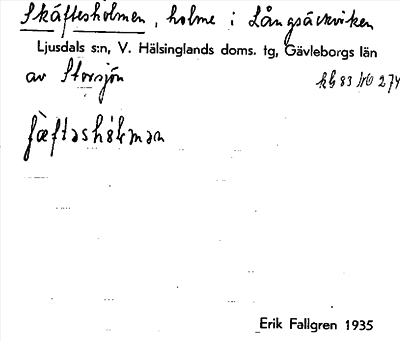 Skäftesholmen, holme i Långsäckviken
Ljusdals s:n, V. Hälsinglands doms. tg, Gävleborgs län
av Storsjön
kG 83 NO 274
Erik Fallgren 1935